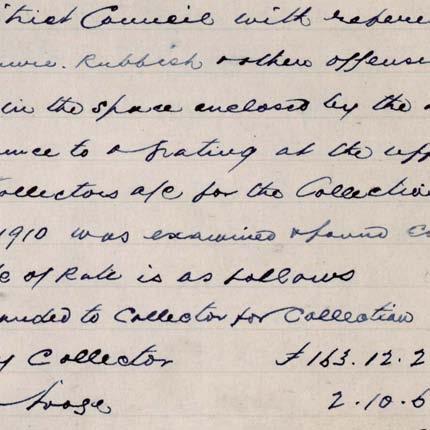 trict Council with refere
nure. Rubbish & other offensi
in the space enclosed by the
ence to a grating at the upp
ollectors a/c for the Collectio
1910 was examined & found co
e of Rate is as follows
anded to Collector for Collection
y Collector £163.12.2
2.10.6